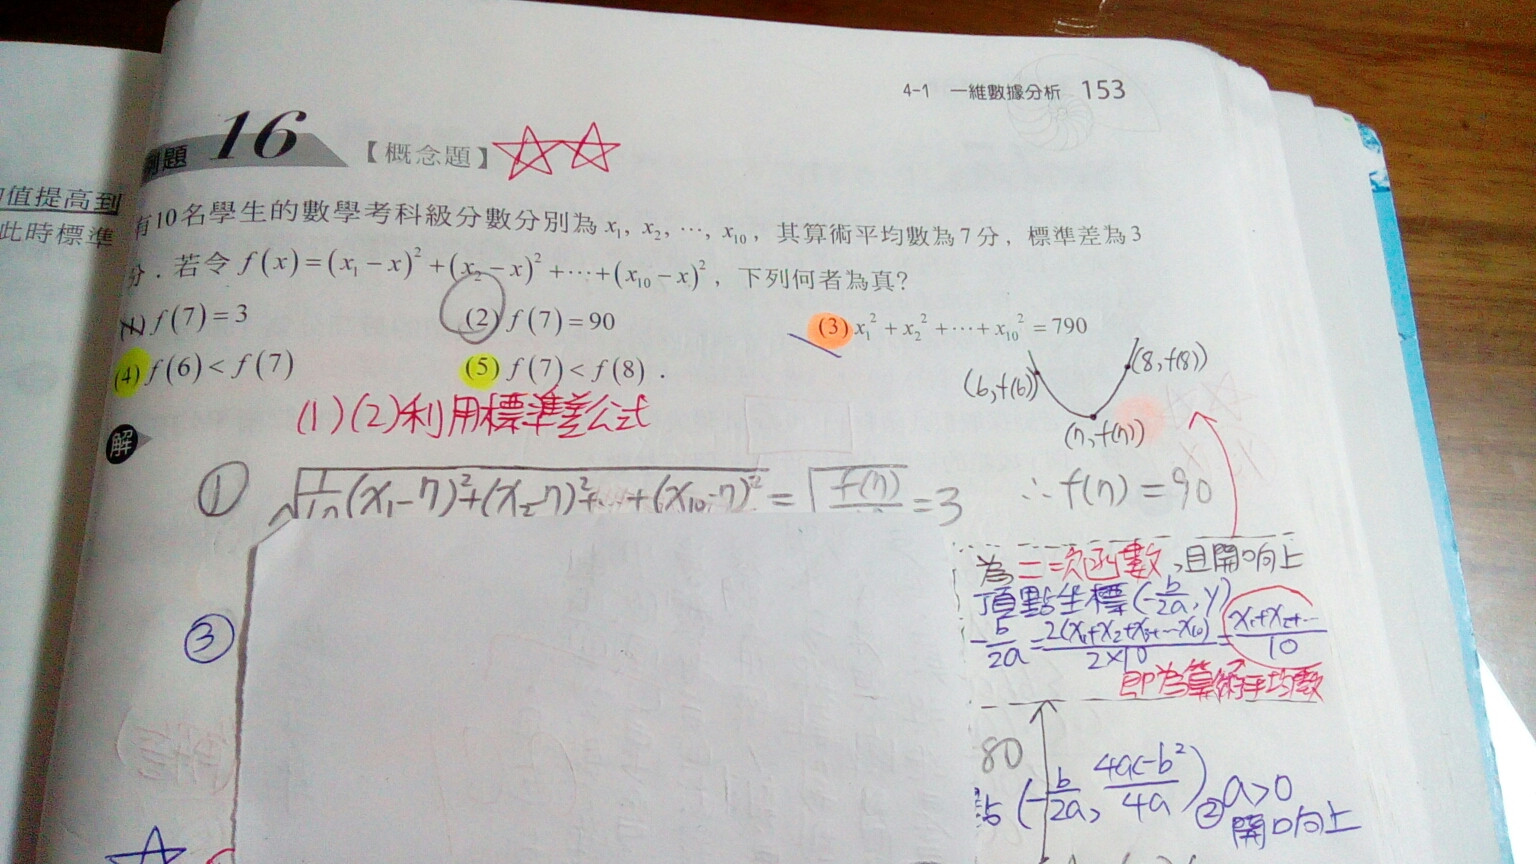 4-1 一維數據分析 153
例題 16 【概念題】
值提高到
此時標準
有10名學生的數學考科級分數分別為 x₁, x₂, ⋯, x₁₀，其算術平均數為7分，標準差為3
分．若令 f(x)=(x₁−x)²+(x₂−x)²+⋯+(x₁₀−x)²，下列何者為真?
(1) f(7)=3 (2) f(7)=90 (3) x₁²+x₂²+⋯+x₁₀²=790
(4) f(6)<f(7) (5) f(7)<f(8)．
(6,f(6)) (8,f(8))
(7,f(7))
(1)(2)利用標準差公式
解
① √(1/10(x₁-7)²+(x₂-7)²+⋯+(x₁₀-7)²) = √(f(7)/10) = 3 ∴ f(7)=90
為二次函數,且開口向上
頂點坐標(-b/2a, y)
③ -b/2a = 2(x₁+x₂+x₃+⋯x₁₀)/2×10 = x₁+x₂+⋯/10
即為算術平均數
80
點(-b/2a, 4ac-b²/4a) ② a>0
開口向上